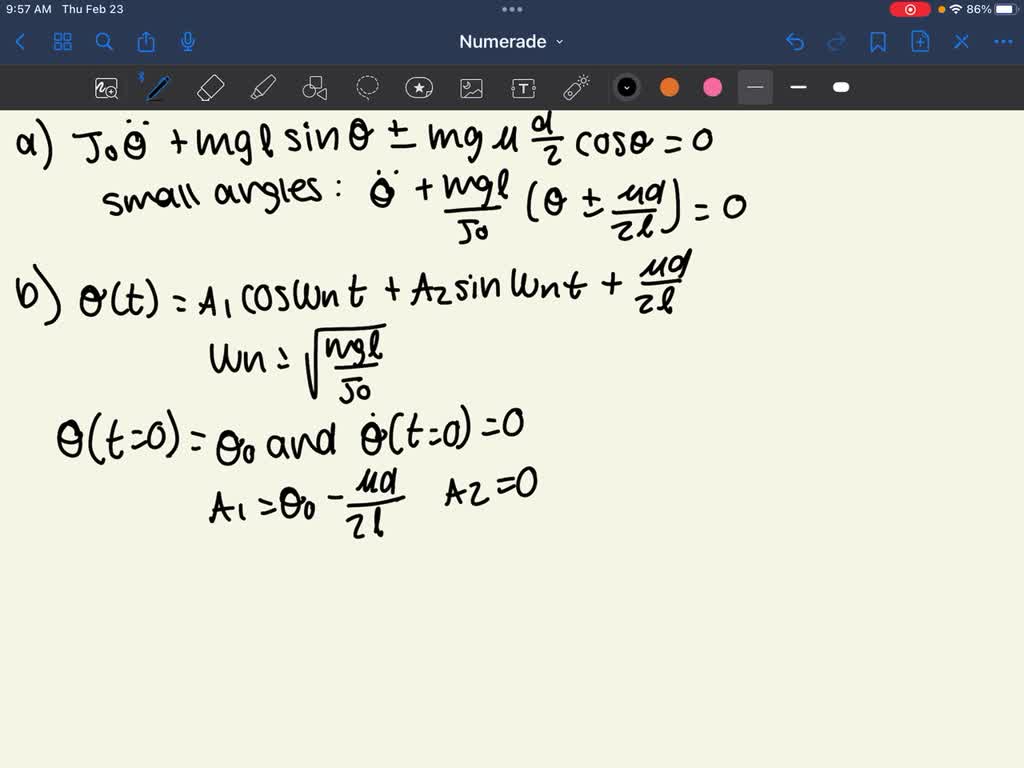 9:57 AM Thu Feb 23 86%
Numerade
a) J₀θ̈ + mgl sinθ ± mgμ d/2 cosθ = 0
small angles: θ̈ + mgl/J₀ (θ ± μd/2l) = 0
b) θ(t) = A₁ cos ωₙt + A₂ sin ωₙt + μd/2l
ωₙ = √(mgl/J₀)
θ(t=0) = θ₀ and θ̇(t=0) = 0
A₁ = θ₀ - μd/2l A₂ = 0